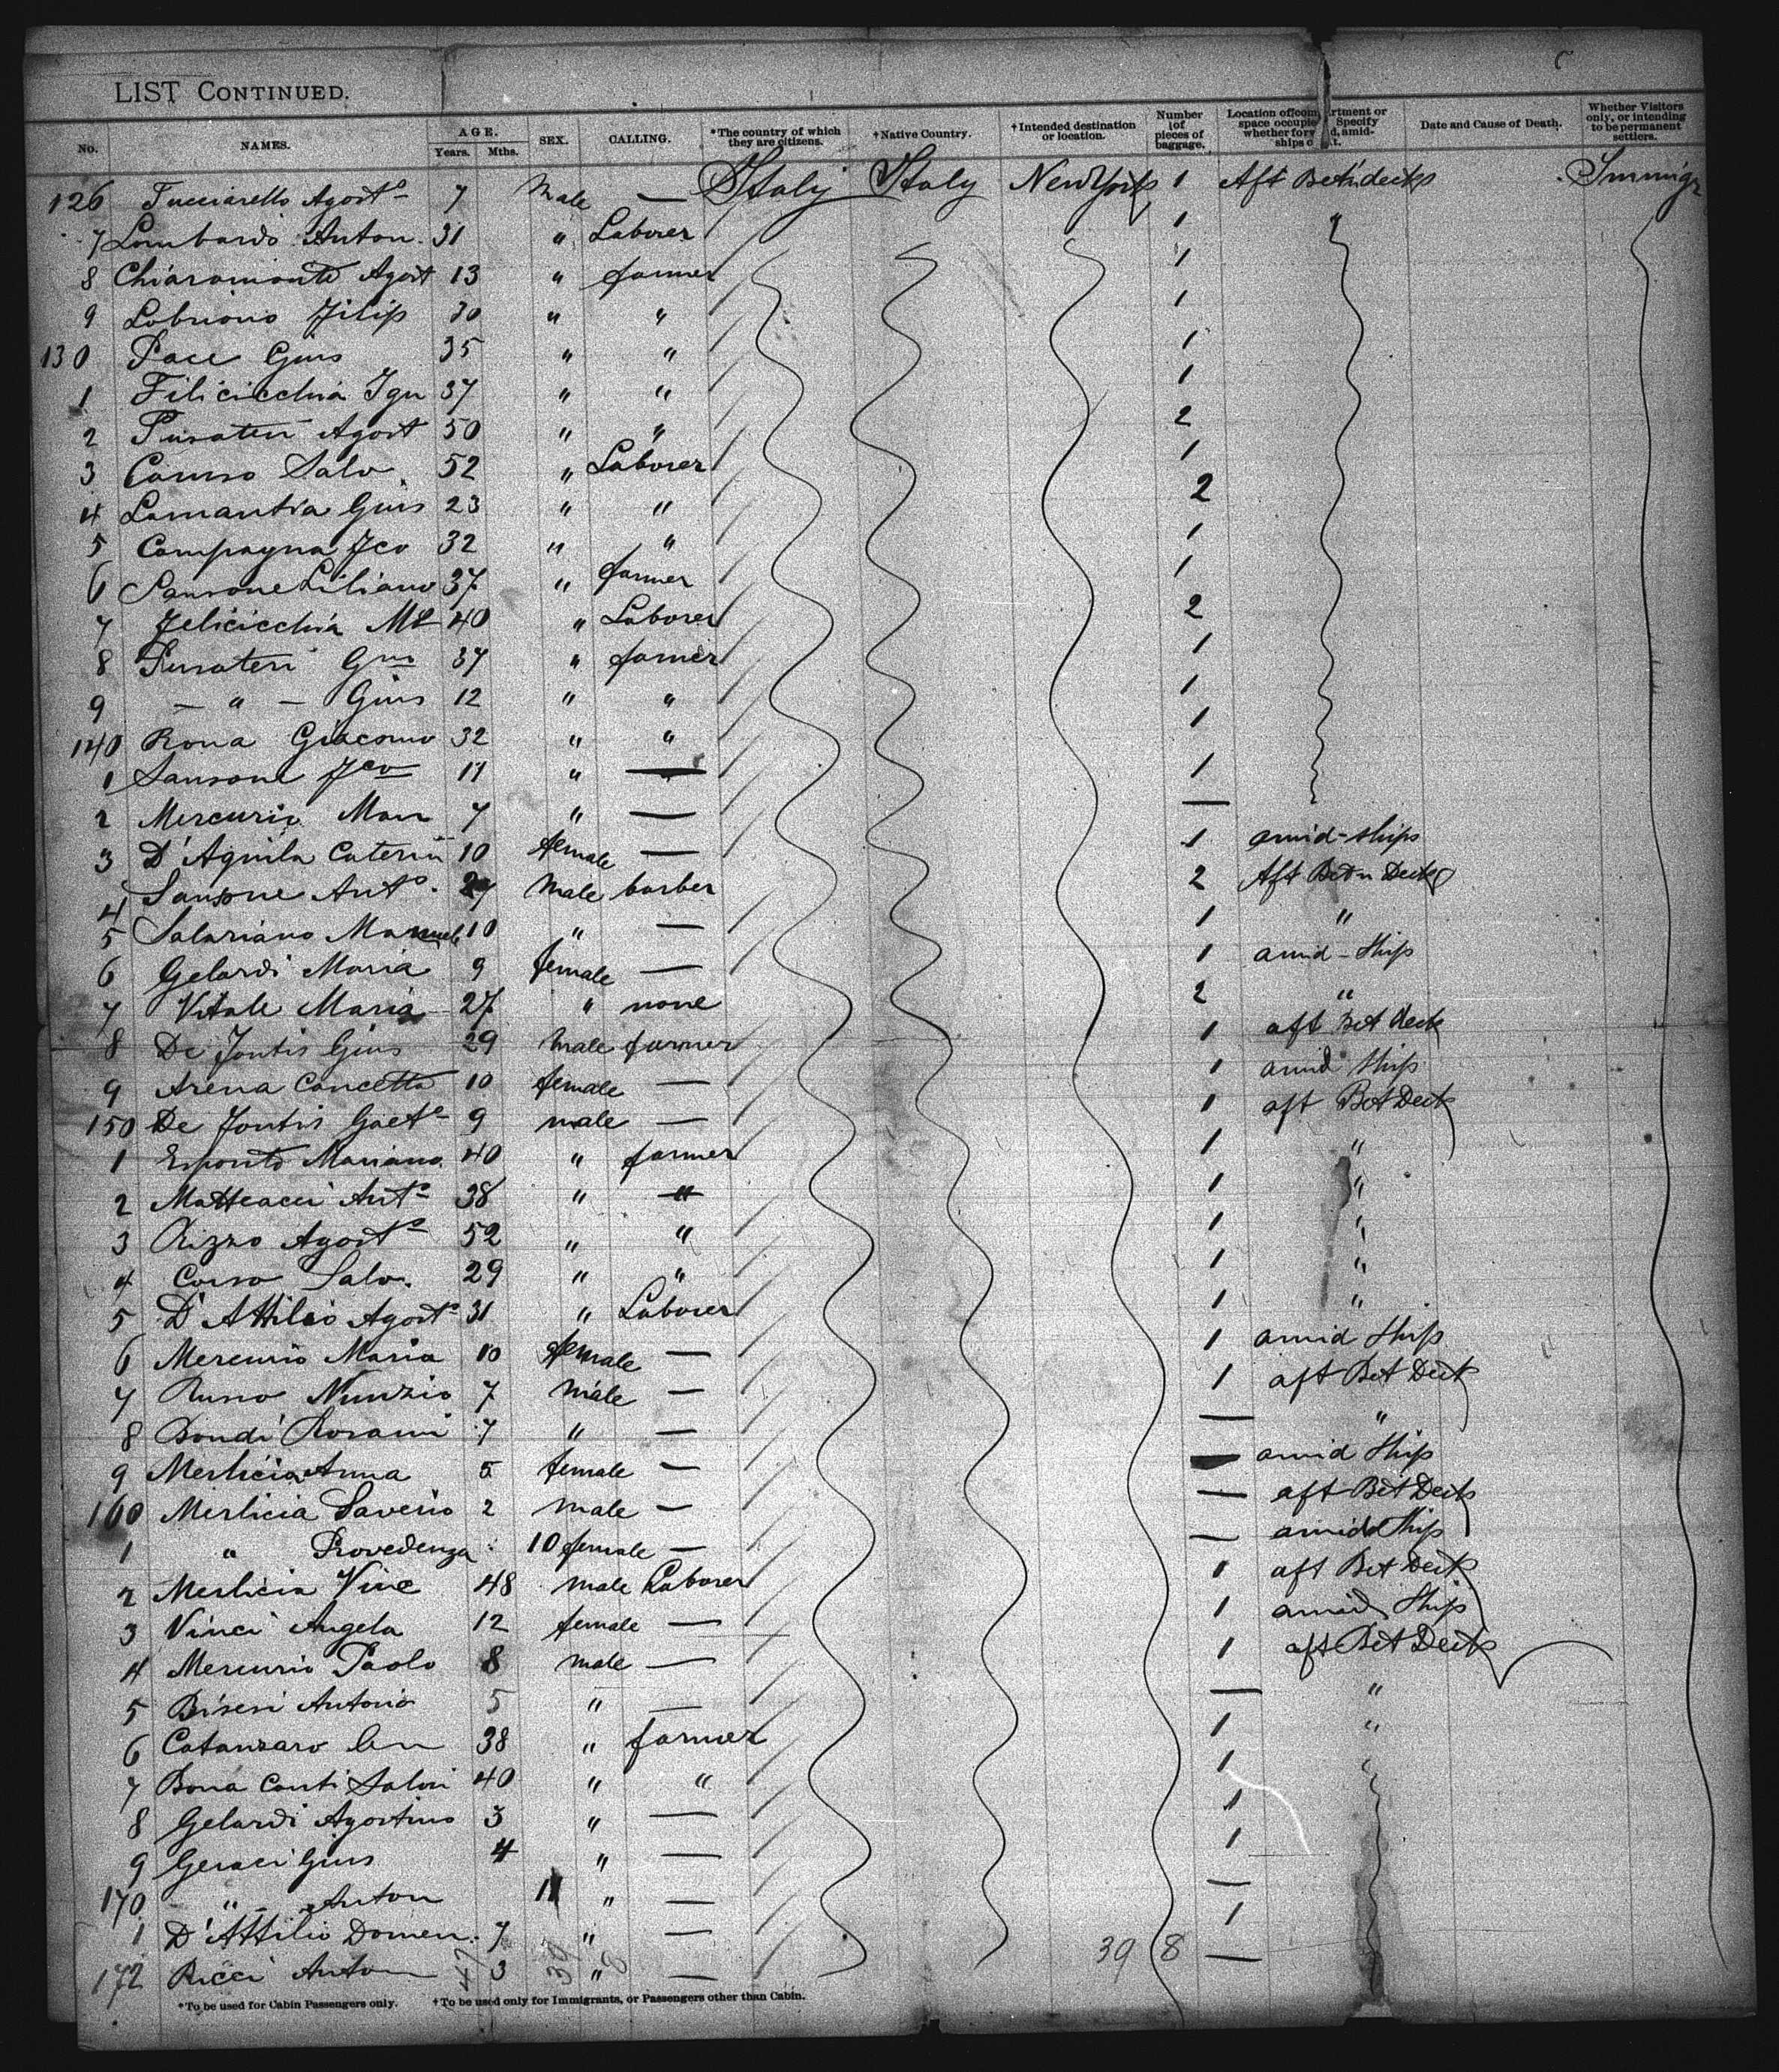 LIST CONTINUED.
No. NAMES. AGE. Years. Mths. SEX. CALLING. *The country of which they are citizens. †Native Country. †Intended destination or location. Number of pieces of baggage. Location of compartment or space occupied Specify whether forward, amidships or aft. Date and Cause of Death. Whether Visitors only, or intending to be permanent settlers.
126 Tucciarello Agost⁰ 7 Male — Italy Italy New York 1 Aft Betw decks Immigr
7 Lombardo Anton. 31 " Laborer 1 "
8 Chiaramonte Agost 13 " farmer 1
9 Filip 30 " " 1
130 Pace Gius 35 " " 1
1 Filicicchia Ign 37 " " 1
2 Pusateri Agost 50 " " 2
3 Caruso Salv 52 " Laborer 1
4 Lamantia Gius 23 " " 2
5 Compagna Fco 32 " " 1
6 Sansone Liliano 37 " farmer 1
7 Felicicchia 40 " Laborer 2
8 Pusateri 37 " farmer 1
9 — " — Gius 12 " " 1
140 Rona Giacomo 32 " " 1
1 Sansone Fco 11 " — 1
2 Mercurio Man 7 " — —
3 D'Aquila Caterin 10 female — 1 amid-ships
4 Sansone Ant⁰. Male barber 2 Aft Betw Decks
5 Salariano Manuele 10 " — 1 "
6 Gelardi Maria 9 female — 1 amid-Ship
7 Vitale Maria 27 " none 2 "
8 De Fontis Gius 29 Male farmer 1 aft Bet Deck
9 Arena Concetta 10 female — 1 amid Ship
150 De Fontis Gaet⁰ 9 male — 1 aft Bet Deck
1 Esposito Mariano 40 " farmer 1 "
2 Matteacci Ant⁰ 38 " " 1 "
3 Rizzo Agost⁰ 52 " " 1 "
4 Corso Salv. 29 " " 1 "
5 D'Attilio Agost⁰ 31 " Laborer 1 "
6 Mercurio Maria 10 female — 1 amid Ship
7 Russo Nunzio 7 Male — 1 aft Bet Deck
8 Bondi 7 " — — "
9 Merlicia Anna 5 female — — amid Ship
160 Merlicia Saverio 2 male — — aft Bet Deck
1 " Provedenza 10 female — — amid Ship
2 Merlicia Vinc 48 male Laborer 1 aft Bet Deck
3 Vinci Angela 12 female — 1 amid Ship
4 Mercurio Paolo 8 male — 1 aft Bet Deck
5 Biseri Antonio 5 " — — "
6 Catanzaro 38 " farmer 1 "
7 Bona Conti Salvi 40 " " 1 "
8 Gelardi Agostino 3 " — 1
9 Geraci Gius 4 " — 1
170 — " — Anton 11 " — —
1 D'Attilio Domen. 7 " — 1
172 Ricci Anton 3 " — —
47 39 8 39 8
*To be used for Cabin Passengers only. †To be used only for Immigrants, or Passengers other than Cabin.